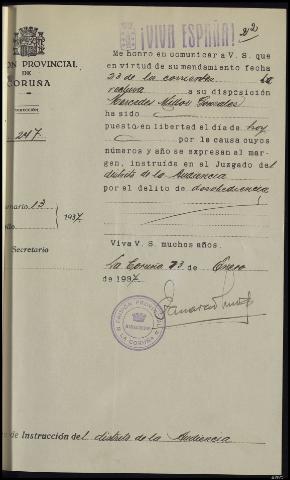 ¡VIVA ESPAÑA!
22
ON PROVINCIAL
DE
CORUÑA
Me honro en comunicar a V. S. que
en virtud de su mandamiento fecha
23 de la corriente la
reclusa a su disposición
Mercedes Millor Gonzales
ha sido
puesto en libertad el día de hoy
por la causa cuyos
números y año se expresan al mar-
gen, instruída en el Juzgado del
distrito de la Audiencia
por el delito de desobediencia
247
umario 13
1937
Secretario
Viva V. S. muchos años.
La Coruña 23 de Enero
de 1937
PRISION PROVINCIAL
LA CORUÑA
de Instrucción del distrito de la Audiencia